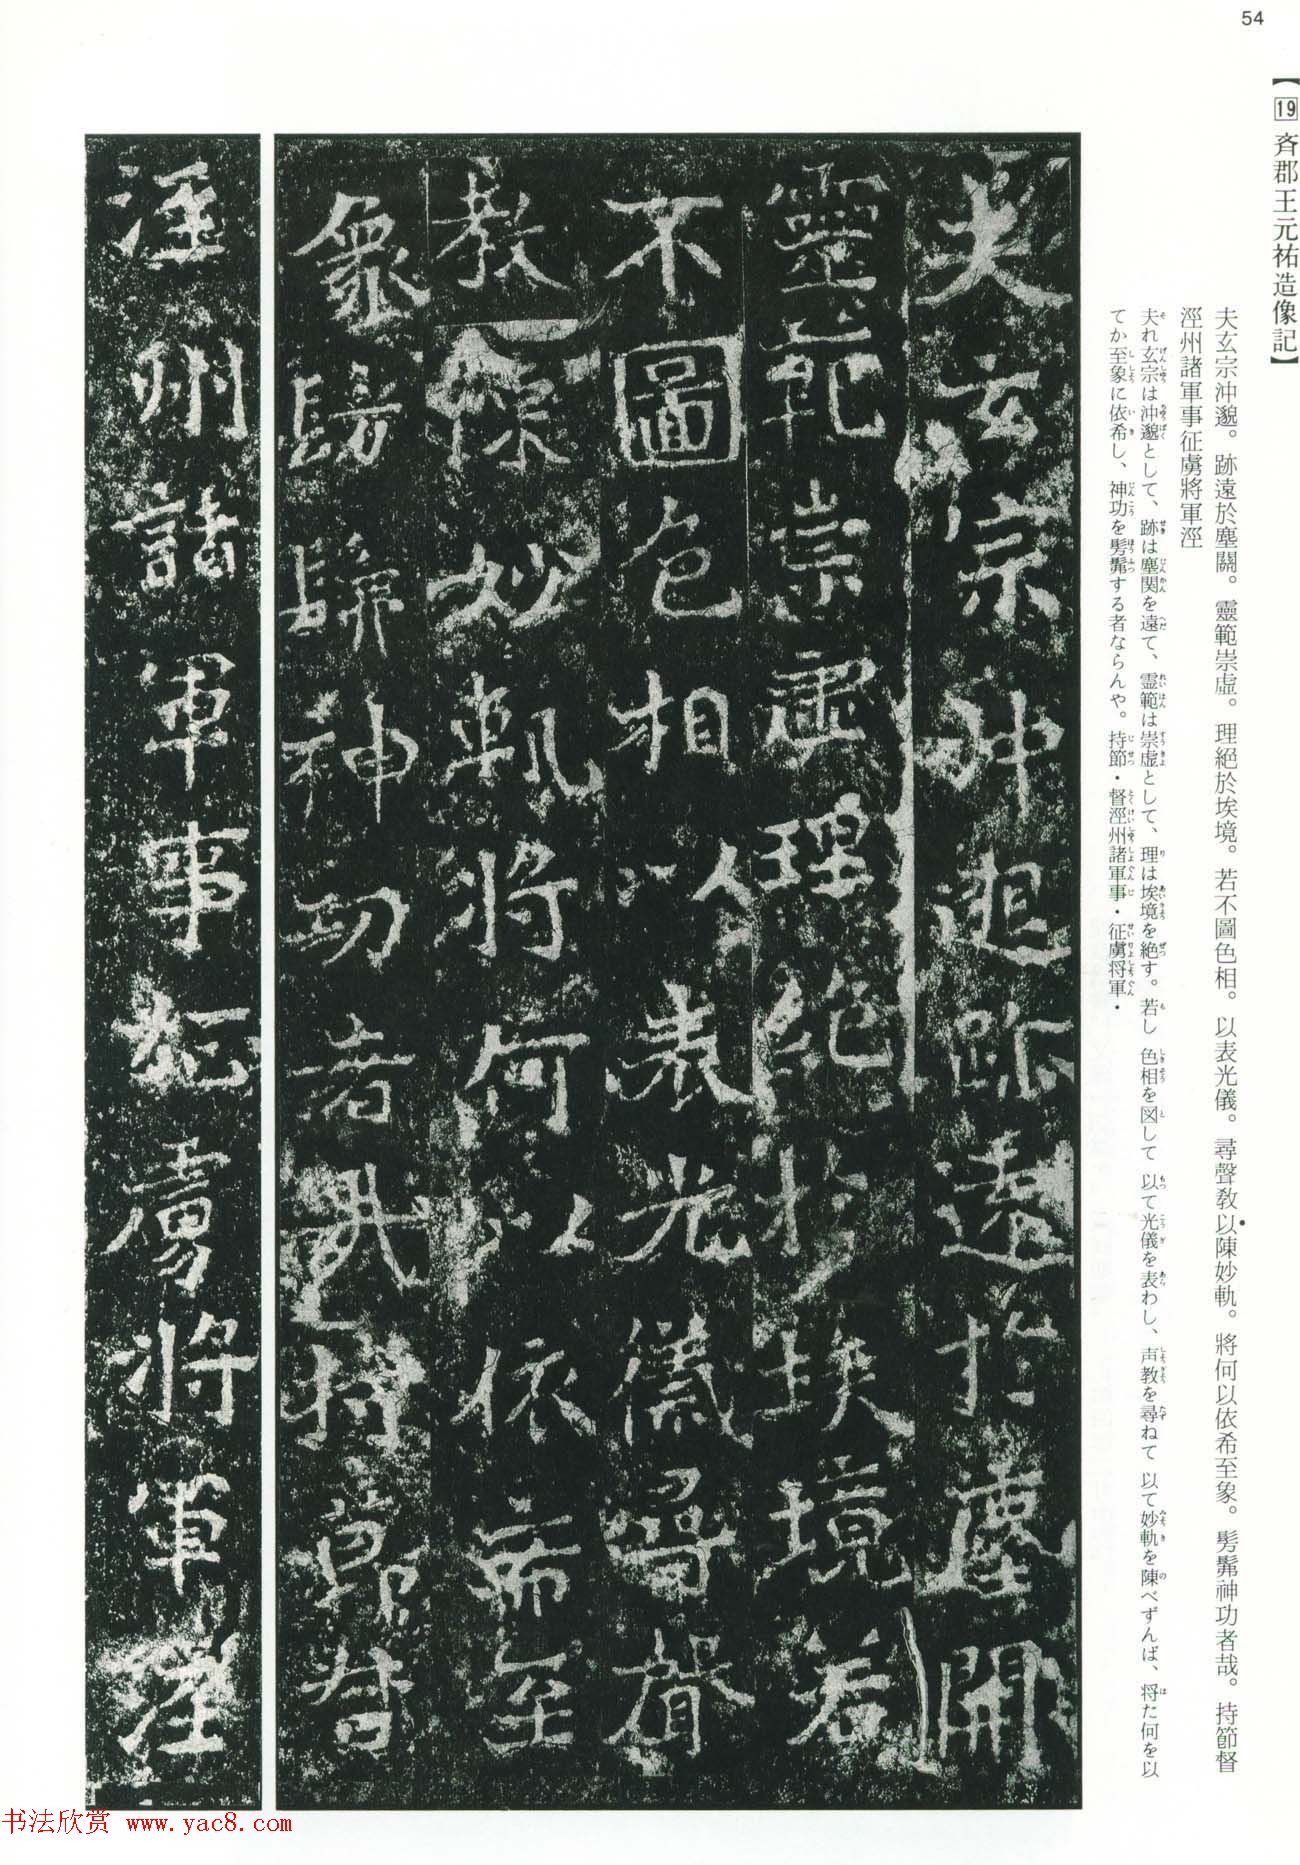 54
【19 斉郡王元祐造像記】
夫玄宗沖邈。跡遠於塵關。靈範崇虛。理絕於埃境。若不圖色相。以表光儀。尋聲教以陳妙軌。將何以依希至象。髣髴神功者哉。持節督
涇州諸軍事征虜將軍涇
夫れ玄宗は沖邈として、跡は塵関を遠て、霊範は崇虚として、理は埃境を絶す。若し色相を図して以て光儀を表わし、声教を尋ねて以て妙軌を陳べずんば、将た何を以
てか至象に依希し、神功を髣髴する者ならんや。持節・督涇州諸軍事・征虜将軍・
夫玄宗沖邈跡遠於塵關
靈範崇虛理絕於埃境若
不圖色相以表光儀尋聲
教陳妙軌將何以依希至
象髣髴神功者哉持節督
涇州諸軍事征虜將軍涇
书法欣赏 www.yac8.com